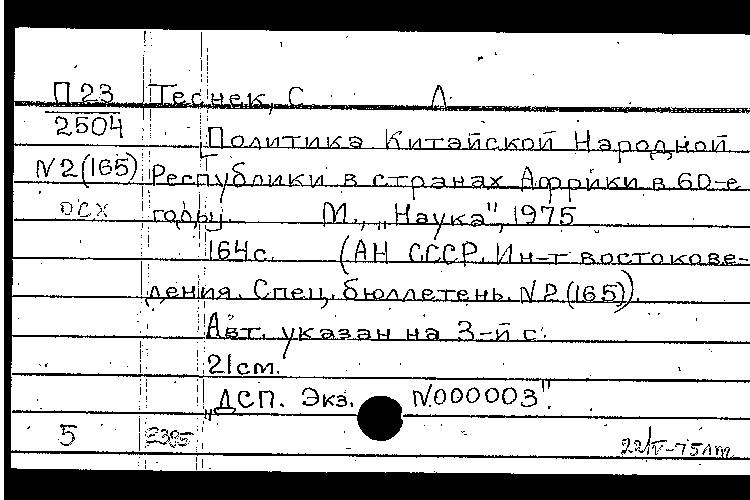 П23 Теснек, С Л.
2504
Политика Китайской Народной
N2(165) Республики в странах Африки в 60-е
осх годы. М., „Наука", 1975
164с. (АН СССР. Ин-т востокове-
дения. Спец. бюллетень. N2(165)).
Авт. указан на 3-й с.
21см.
„ДСП. Экз. N000003".
5 2385 22/IV-75